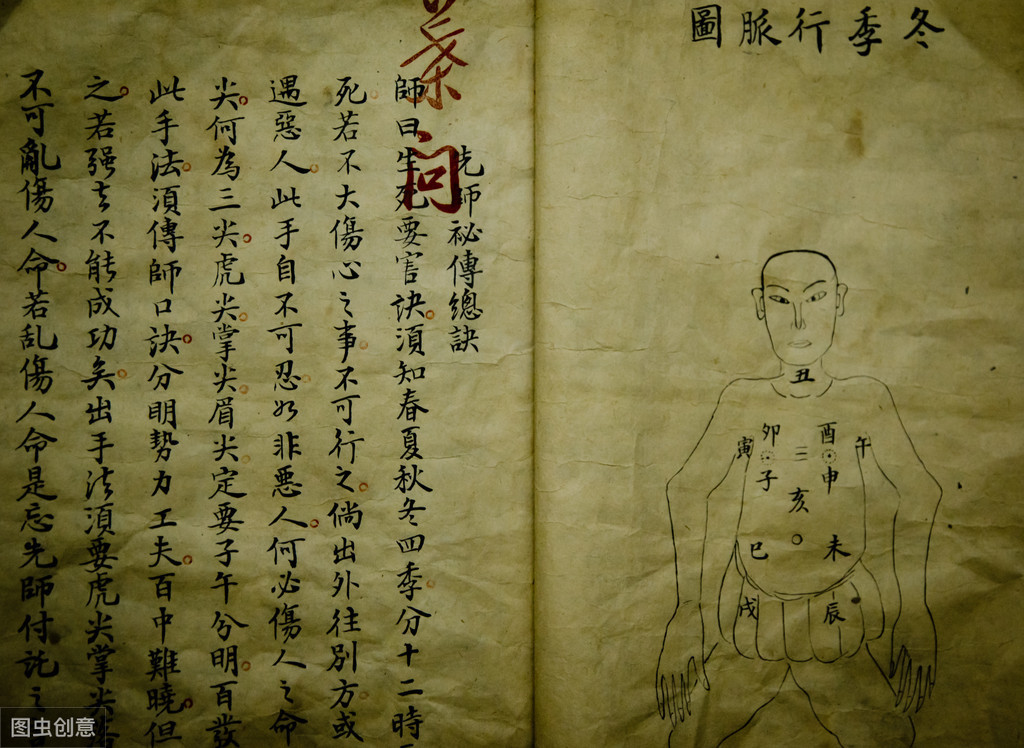 冬季行脈圖
丑
卯 酉
寅 三 午
子 申
亥
巳 未
戌 辰
葉问
先師祕傳總訣
師曰生死要害訣須知春夏秋冬四季分十二時
死若不大傷心之事不可行之倘出外往別方或
遇惡人此手自不可忍如非悪人何必傷人之命
尖何為三尖虎尖掌尖眉尖定要子午分明百發
此手法須傳師口訣分明勢力工夫百中難曉但
之若强去不能成功矣出手法須要虎尖掌尖
不可亂傷人命若乱傷人命是忘先師付託之
图虫创意